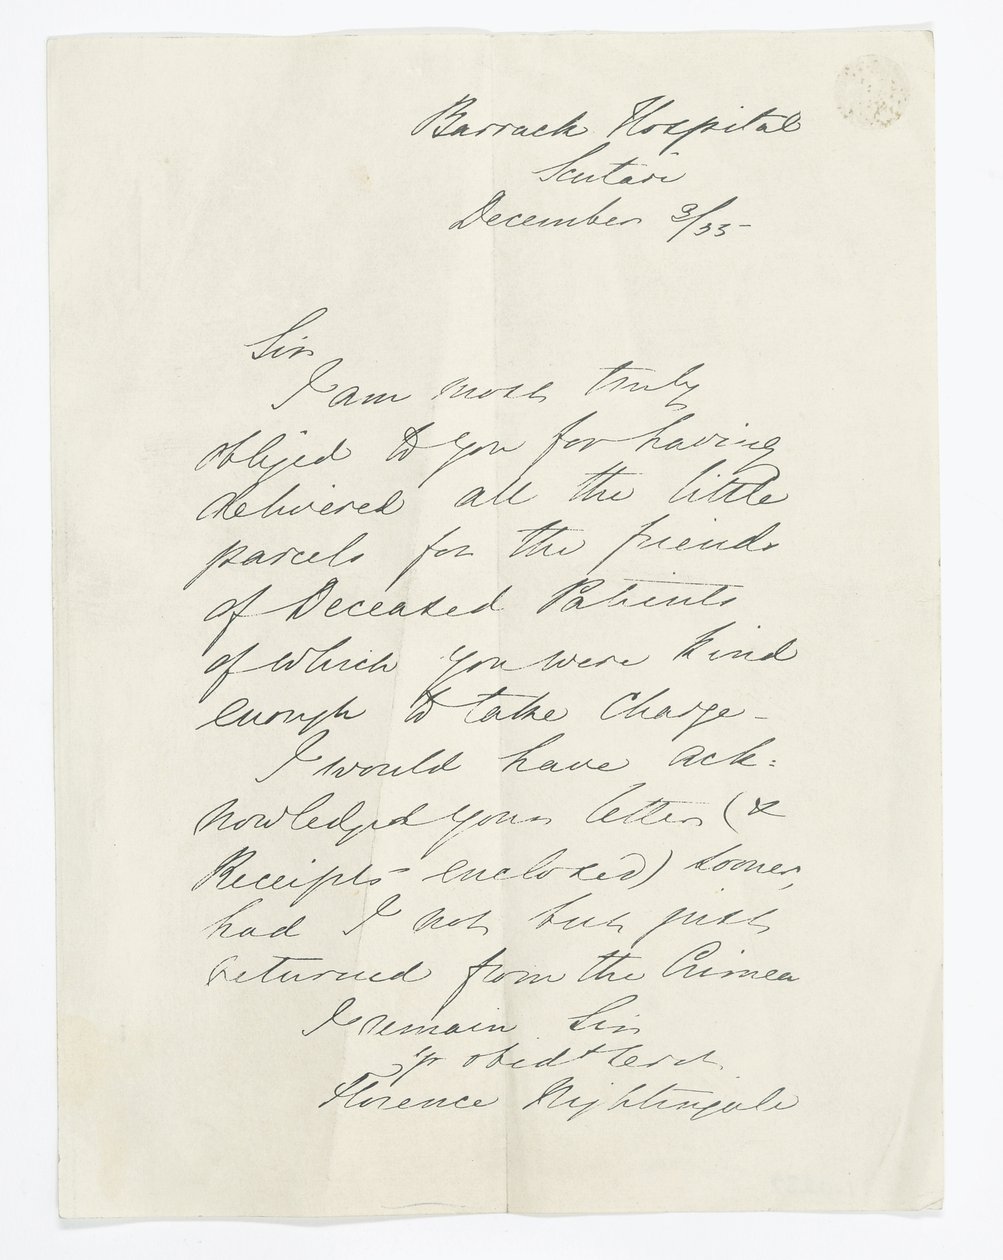 Barrack Hospital
Scutari
December 3/55
Sir
I am most truly
obliged to you for having
delivered all the little
parcels for the friends
of Deceased Patients
of which you were kind
enough to take charge -
I would have ack:
nowledged your letter (&
Receipts enclosed) sooner,
had I not but just
returned from the Crimea
I remain Sir
yr obedt Servt
Florence Nightingale